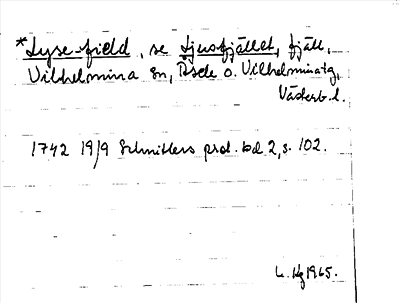 *Lyse-field, se Ljusfjället, fjäll,
Vilhelmina sn, Åsele o. Vilhelmina tg,
Västerb. l.
1742 19/9 Schnitlers prot. bd 2, s. 102.
L. Hg 1965.